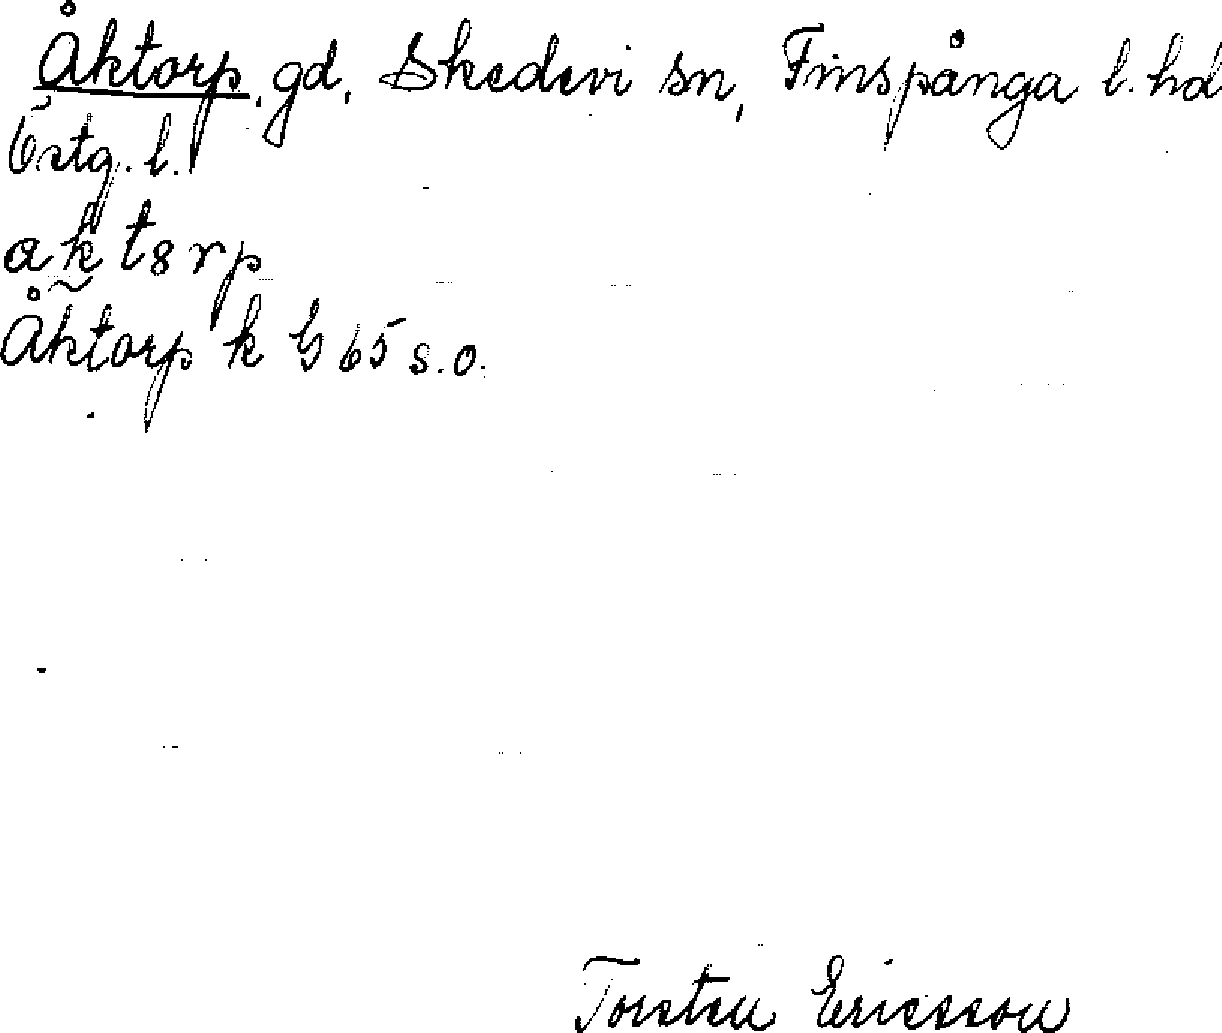 Åktorp, gd, Skedevi sn, Finspånga l. hd
Östg. l.
Åktorp k G 65 s.o.
Torsten Ericsson